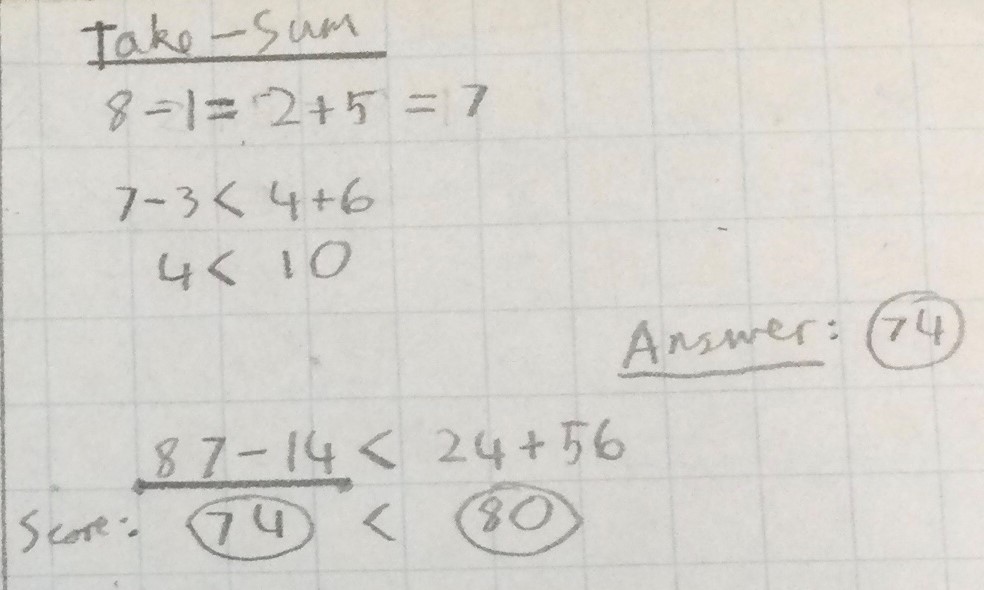 Take-Sum
8-1= 2+5 = 7
7-3 < 4+6
4 < 10
Answer: 74
87-14 < 24+56
Score: 74 < 80